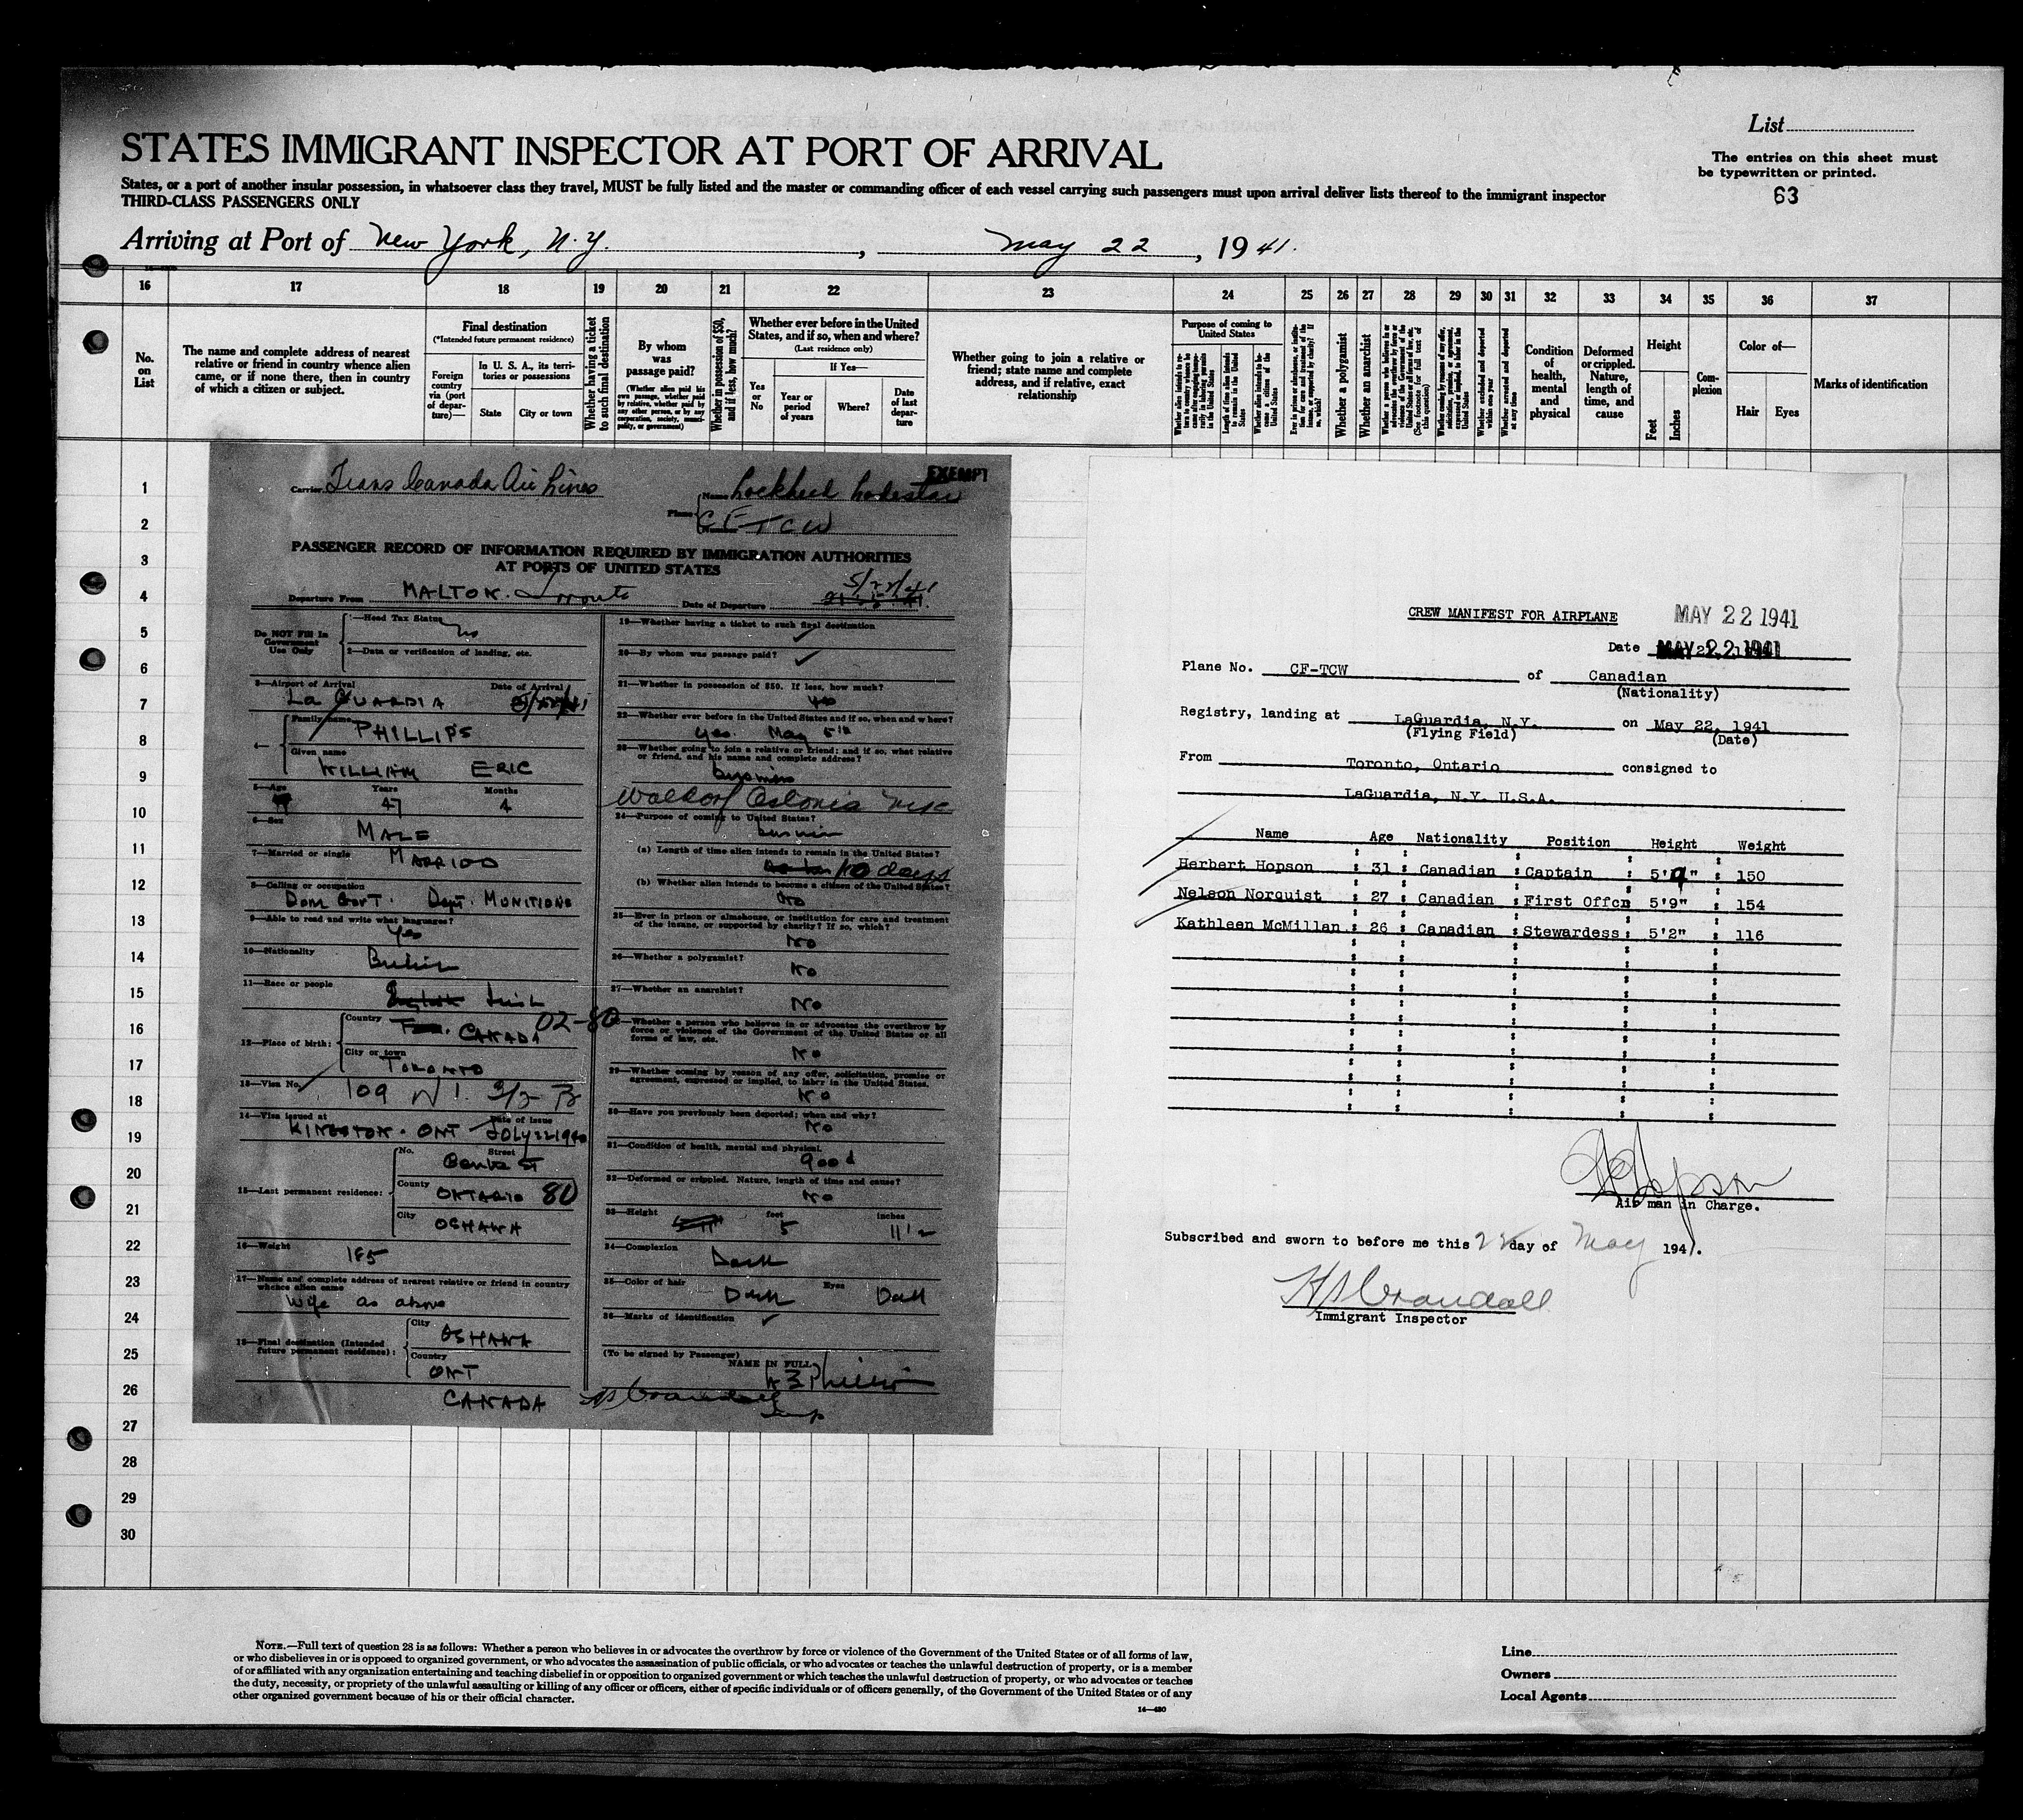 List
STATES IMMIGRANT INSPECTOR AT PORT OF ARRIVAL
The entries on this sheet must
be typewritten or printed.
63
States, or a port of another insular possession, in whatsoever class they travel, MUST be fully listed and the master or commanding officer of each vessel carrying such passengers must upon arrival deliver lists thereof to the immigrant inspector
THIRD-CLASS PASSENGERS ONLY
Arriving at Port of New York, N.Y., May 22, 1941.
16 17 18 19 20 21 22 23 24 25 26 27 28 29 30 31 32 33 34 35 36 37
No.
on
List
The name and complete address of nearest
relative or friend in country whence alien
came, or if none there, then in country
of which a citizen or subject.
Final destination
(*Intended future permanent residence)
Foreign
country
via (port
of depar-
ture)—
In U. S. A., its terri-
tories or possessions
State
City or town
Whether having a ticket
to such final destination
By whom
was
passage paid?
(Whether alien paid his
own passage, whether paid
by relative, whether paid by
any other person, or by any
corporation, society, munici-
pality, or government)
Whether in possession of $50,
and if less, how much?
Whether ever before in the United
States, and if so, when and where?
(Last residence only)
Yes
or
No
If Yes—
Year or
period
of years
Where?
Date
of last
depar-
ture
Whether going to join a relative or
friend; state name and complete
address, and if relative, exact
relationship
Purpose of coming to
United States
Length of time alien intends
to remain in the United
States
Whether a polygamist
Whether an anarchist
(See footnote for full text of
this question)
Whether excluded and deported
within one year
Whether arrested and deported
at any time
Condition
of
health,
mental
and
physical
Deformed
or crippled.
Nature,
length of
time, and
cause
Height
Feet
Inches
Com-
plexion
Color of—
Hair
Eyes
Marks of identification
1
2
3
4
5
6
7
8
9
10
11
12
13
14
15
16
17
18
19
20
21
22
23
24
25
26
27
28
29
30
EXEMPT
Carrier Trans Canada Air Lines
Plane Name Lockheed Lodestar
Number CF TCW
PASSENGER RECORD OF INFORMATION REQUIRED BY IMMIGRATION AUTHORITIES
AT PORTS OF UNITED STATES
Departure From MALTON. Toronto Date of Departure 5/22/41
Do NOT Fill In
Government
Use Only
1—Head Tax Status
2—Data or verification of landing, etc.
3—Airport of Arrival Date of Arrival
LA GUARDIA 5/22/41
4— Family name
PHILLIPS
Given name
WILLIAM ERIC
5—Age Years Months
47 4
6—Sex
MALE
7—Married or single
MARRIED
8—Calling or occupation
DOM GOVT. DEPT. MUNITIONS
9—Able to read and write what languages?
Yes
10—Nationality
British
11—Race or people
English Irish
12—Place of birth:
Country
CANADA 02-80
City or town
TORONTO
13—Visa No.
109
14—Visa issued at Date of Issue
KINGSTON. ONT JULY 22 1940
15—Last permanent residence:
No. Street
County
ONTARIO 80
City
OSHAWA
16—Weight
185
17—Name and complete address of nearest relative or friend in country
whence alien came
Wife as above
18—Final destination (Intended
future permanent residence):
City
OSHAWA
Country
ONT
CANADA
19—Whether having a ticket to such final destination
20—By whom was passage paid?
21—Whether in possession of $50. If less, how much?
22—Whether ever before in the United States and if so, when and where?
yes. May 5th
23—Whether going to join a relative or friend; and if so, what relative
or friend, and his name and complete address?
business
Waldorf Astoria NYC
24—Purpose of coming to United States?
business
(a) Length of time alien intends to remain in the United States?
10 days
(b) Whether alien intends to become a citizen of the United States?
No
25—Ever in prison or almshouse, or institution for care and treatment
of the insane, or supported by charity? If so, which?
No
26—Whether a polygamist?
No
27—Whether an anarchist?
No
28—Whether a person who believes in or advocates the overthrow by
force or violence of the Government of the United States or all
forms of law, etc.
No
29—Whether coming by reason of any offer, solicitation, promise or
agreement, expressed or implied, to labor in the United States.
No
30—Have you previously been deported; when and why?
No
31—Condition of health, mental and physical.
good
32—Deformed or crippled. Nature, length of time and cause?
No
33—Height feet inches
5 11 1/2
34—Complexion
Dark
35—Color of hair Eyes
Dark Dark
36—Marks of identification
(To be signed by Passenger)
NAME IN FULL
W E Phillips
H S Crandall
Insp
CREW MANIFEST FOR AIRPLANE MAY 22 1941
Date MAY 22 1941
Plane No. CF-TCW of Canadian
(Nationality)
Registry, landing at LaGuardia, N.Y. on May 22, 1941
(Flying Field) (Date)
From Toronto, Ontario consigned to
LaGuardia, N.Y. U.S.A.
Name Age Nationality Position Height Weight
Herbert Hopson : 31 : Canadian : Captain : 5'9" : 150
Nelson Norquist : 27 : Canadian : First Offcr 5'9" : 154
Kathleen McMillan : 26 : Canadian : Stewardess : 5'2" : 116
H Hopson
Air man in Charge.
Subscribed and sworn to before me this 22 day of May 1941.
H S Crandall
Immigrant Inspector
NOTE.—Full text of question 28 is as follows: Whether a person who believes in or advocates the overthrow by force or violence of the Government of the United States or of all forms of law,
or who disbelieves in or is opposed to organized government, or who advocates the assassination of public officials, or who advocates or teaches the unlawful destruction of property, or is a member
of or affiliated with any organization entertaining and teaching disbelief in or opposition to organized government or which teaches the unlawful destruction of property, or who advocates or teaches
the duty, necessity, or propriety of the unlawful assaulting or killing of any officer or officers, either of specific individuals or of officers generally, of the Government of the United States or of any
other organized government because of his or their official character.
14—430
Line
Owners
Local Agents